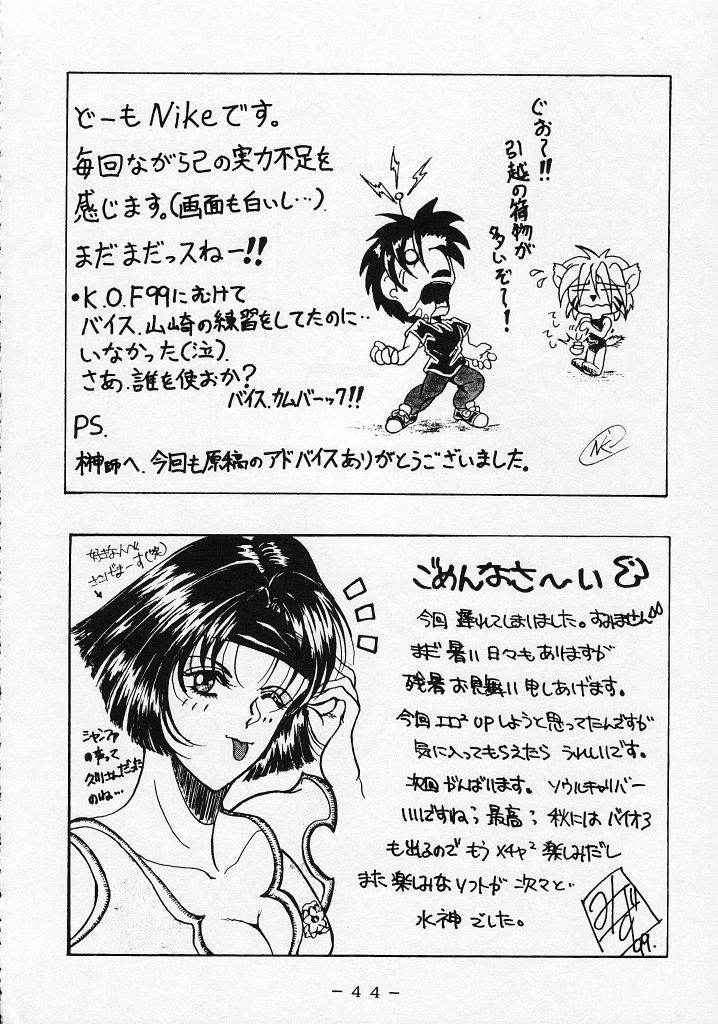 どーもNikeです。
毎回ながら己の実力不足を
感じます。(画面も白いし…)
まだまだっスねー!!
・K.O.F99にむけて
バイス、山崎の練習をしてたのに…
いなかった(泣).
さあ、誰を使おか?
バイス、カムバーック!!
PS.
榊師へ、今回も原稿のアドバイスありがとうございました。
ぐお〜!!
引越の荷物が
多いぞ〜!
てぃし
てぃし
ごめんなさ〜い
今回 遅れてしまいました。すみません
まだ 暑い 日々もありますが
残暑 お見舞い 申しあげます。
今回 エロ² UPしようと思ってたんですが
気に入ってもらえたら うれしいです。
次回 がんばります。 ソウルキャリバー
いいですね 最高 秋には バイオ3
も出るので もう メチャ² 楽しみだし
また 楽しみな ソフトが 次々と
水神 でした。
好きなんで
ささげまーす(笑)
シャンファ
の声って
久川さんだった
のね…
みず
99.
- 44 -